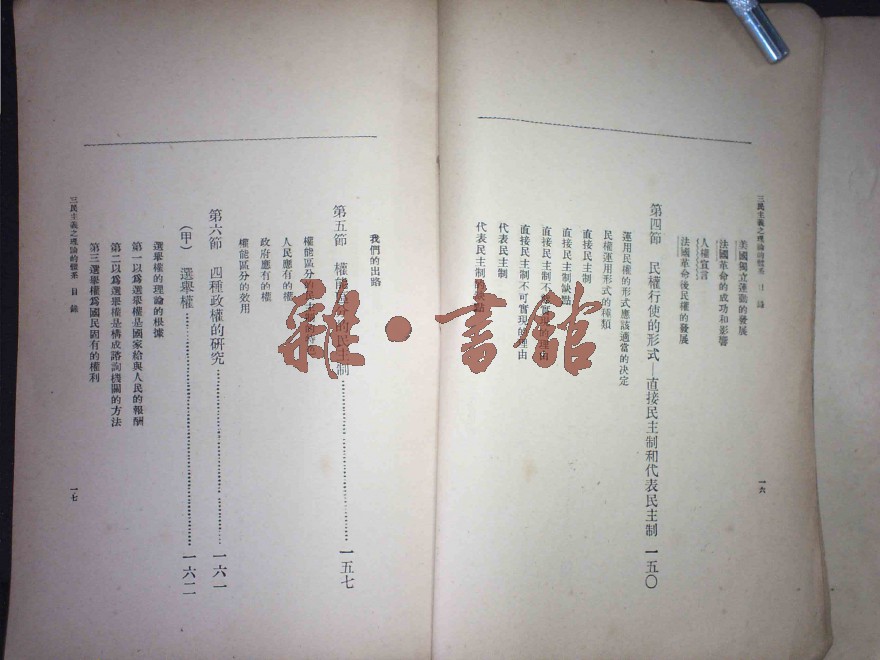 三民主義之理論的體系 目錄
美國獨立運動的發展
法國革命的成功和影響
人權宣言
法國革命後民權的發展
第四節 民權行使的形式—直接民主制和代表民主制 一五〇
運用民權的形式應該適當的决定
民權運用形式的種類
直接民主制
直接民主制缺點
直接民主制不
理由
直接民主制不可實現的理由
代表民主制
代表民主制的缺點
一六
我們的出路
第五節 權能區分的民主制……一五七
權能區分的民主制的
人民應有的權
政府應有的權
權能區分的效用
第六節 四種政權的研究……一六一
(甲) 選舉權……一六二
選舉權的理論的根據
第一以爲選舉權是國家給與人民的報酬
第二以爲選舉權是構成諮詢機關的方法
第三選舉權爲國民固有的權利
三民主義之理論的體系 目錄
一七
雜·書館